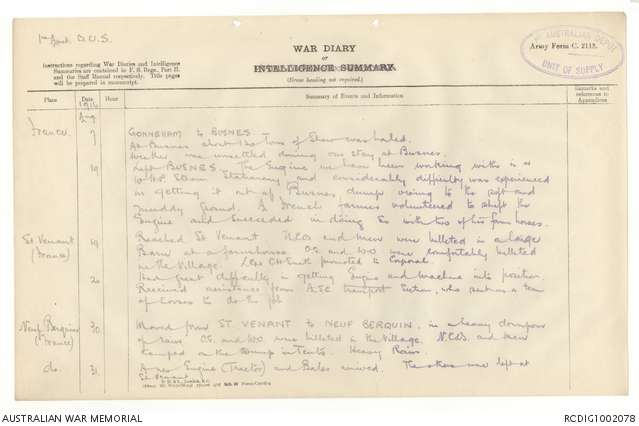 1st Aust. D.U.S.
1st AUSTRALIAN DEPOT
UNIT OF SUPPLY
WAR DIARY
or
INTELLIGENCE SUMMARY.
(Erase heading not required.)
Army Form C. 2118.
Instructions regarding War Diaries and Intelligence
Summaries are contained in F. S. Regs., Part II.
and the Staff Manual respectively. Title pages
will be prepared in manuscript.
Place Date Hour Summary of Events and Information Remarks and references to Appendices
1916
Aug
France. 7 GONNEHAM to BUSNES
At Busnes about tons of Straw was baled.
Weather was unsettled during our stay at Busnes.
19 Left BUSNES. The Engine we have been working with is a
10 H.P. Steam Stationary and considerably difficulty was experienced
in getting it out of Busnes dump owing to the soft and
muddy ground. A French farmer volunteered to shift the
Engine and succeeded in doing so with two of his farm horses.
St Venant (France) 19 Reached St Venant N.C.Os and men were billeted in a large
Barn at a farmhouse O.C. and W.O. were comfortably billeted
in the Village. promoted to Corporal
20 Had great difficulty in getting Engine and machine into position
Received assistance from A.S.C transport Section, who sent us a team
of horses to do the job
Neuf Berquin (France) 30 Moved from ST VENANT to NEUF BERQUIN, in a heavy downpour
of rain. O.C. and W.O. was billeted in the Village. N.C.O's and men
camped on the Dump in Tents. Heavy Rain.
do. 31. A new Engine (Tractor) and Baler arrived. The others was left at
St Venant
AUSTRALIAN WAR MEMORIAL
RCDIG1002078